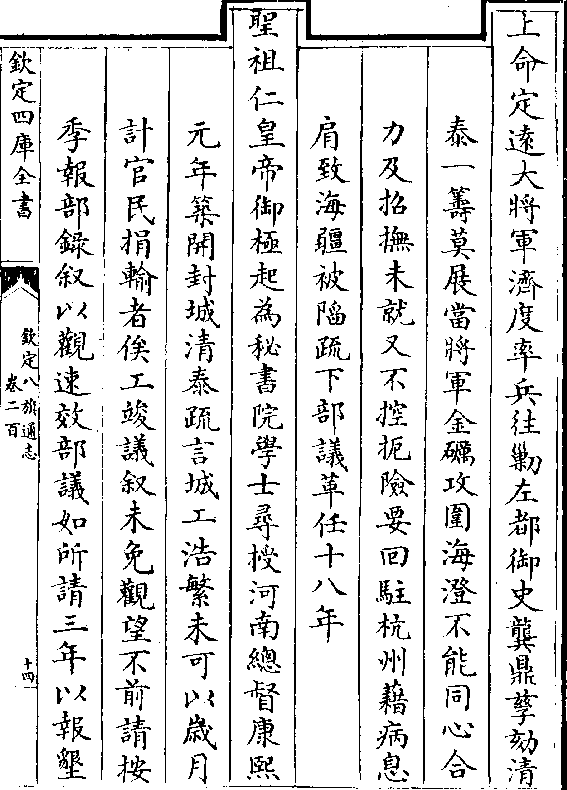 上命定逺大將軍濟度率兵往勦左都御史龔鼎孳劾清
泰一籌莫展當將軍金礪攻圍海澄不能同心合
力及招撫未就又不控扼險要回駐杭州藉病息
肩致海疆被䧟疏下部議革任十八年
聖祖仁皇帝御極起為秘書院學士尋授河南總督康熙
元年築開封城清泰疏言城工浩繁未可以歲月
計官民捐輸者俟工竣議叙未免觀望不前請按
季報部錄叙以觀速效部議如所請三年以報墾
欽定四庫全書
欽定八旗通志
卷二百
十四